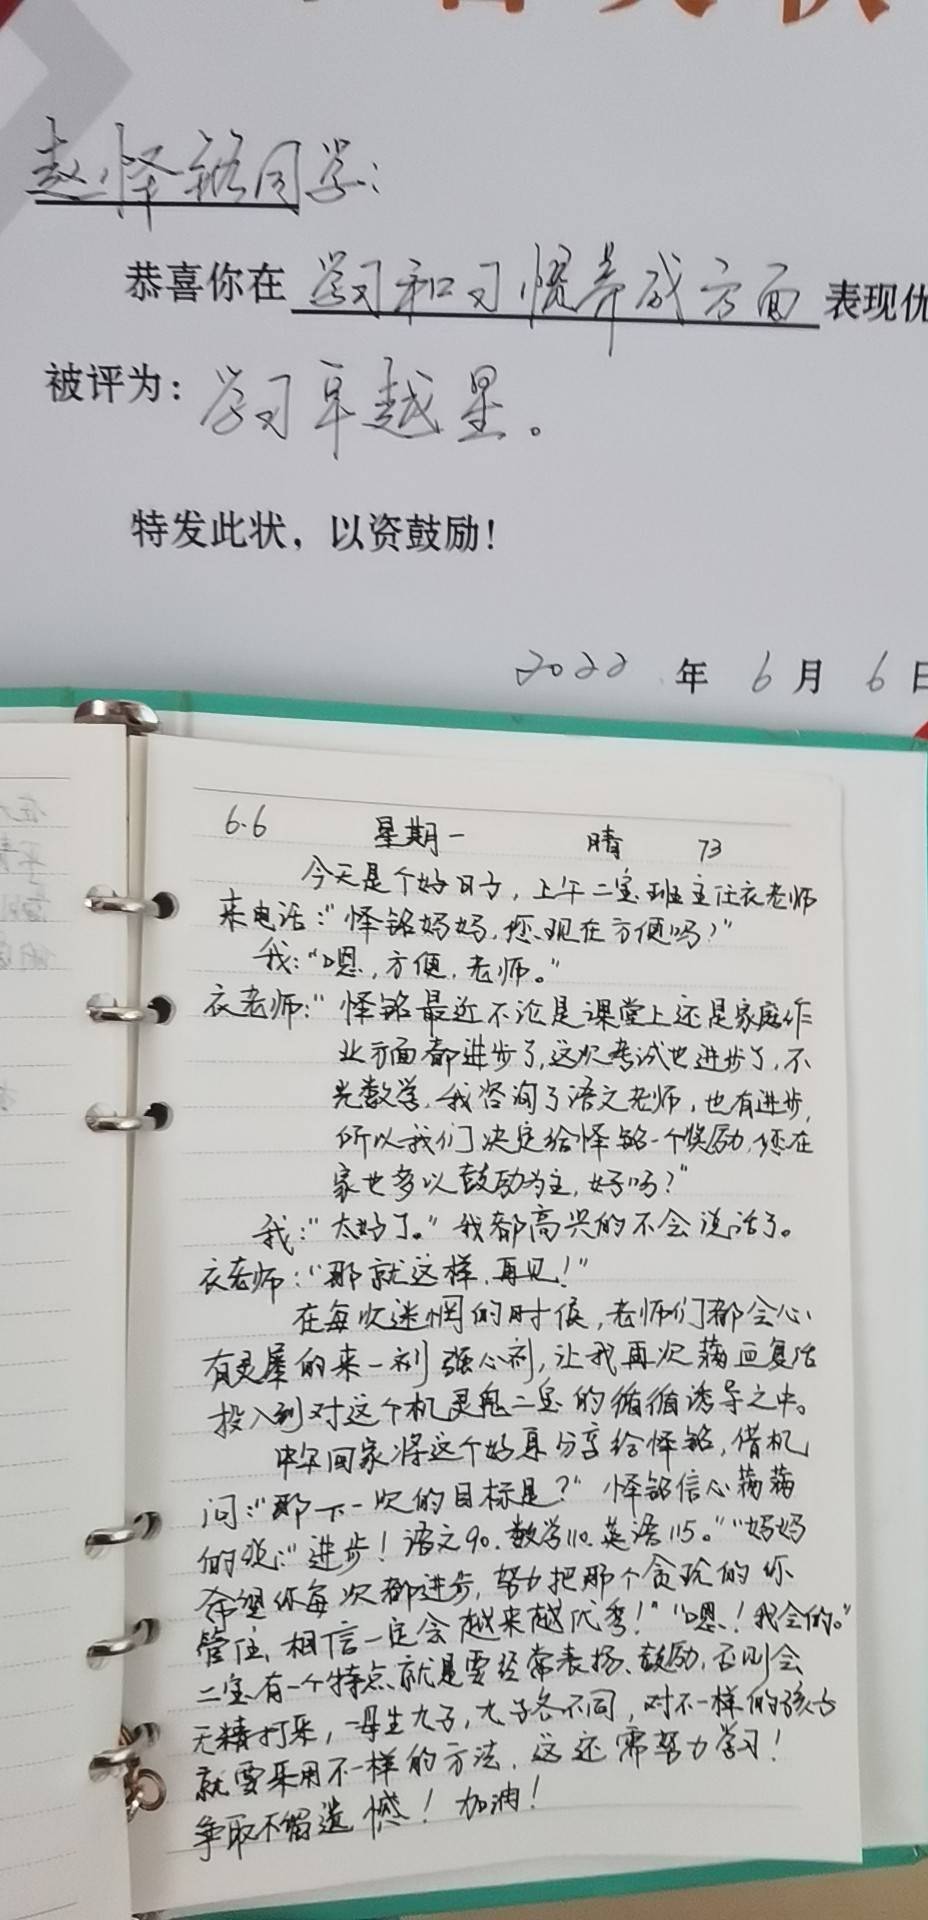 赵怿铭同学:
恭喜你在 学习和习惯养成方面 表现优
被评为: 学习卓越星。
特发此状，以资鼓励!
2022 年 6 月 6 日
6.6 星期一 晴 73
今天是个好日子，上午二宝班主任衣老师
来电话:“怿铭妈妈,您现在方便吗?”
我:“嗯,方便,老师。”
衣老师:“怿铭最近不论是课堂上还是家庭作
业方面都进步了,这次考试也进步了,不
光数学,我咨询了语文老师,也有进步,
所以我们决定给怿铭一个奖励,您在
家也多以鼓励为主,好吗?”
我:“太好了。”我都高兴的不会说话了。
衣老师:“那就这样,再见!”
在每次迷惘的时候,老师们都会心
有灵犀的来一剂强心剂,让我再次满血复活
投入到对这个机灵鬼二宝的循循诱导之中。
中午回家将这个好息分享给怿铭,借机
问:“那下一次的目标是?”怿铭信心满满
的说:“进步!语文90.数学110.英语115。”“妈妈
希望你每次都进步,努力把那个贪玩的你
管住,相信一定会越来越优秀!”“嗯!我会的。”
二宝有一个特点就是要经常表扬、鼓励,否则会
无精打采,一母生九子,九子各不同,对不一样的孩子
就要采用不一样的方法,这还需努力学习!
争取不留遗憾!加油!